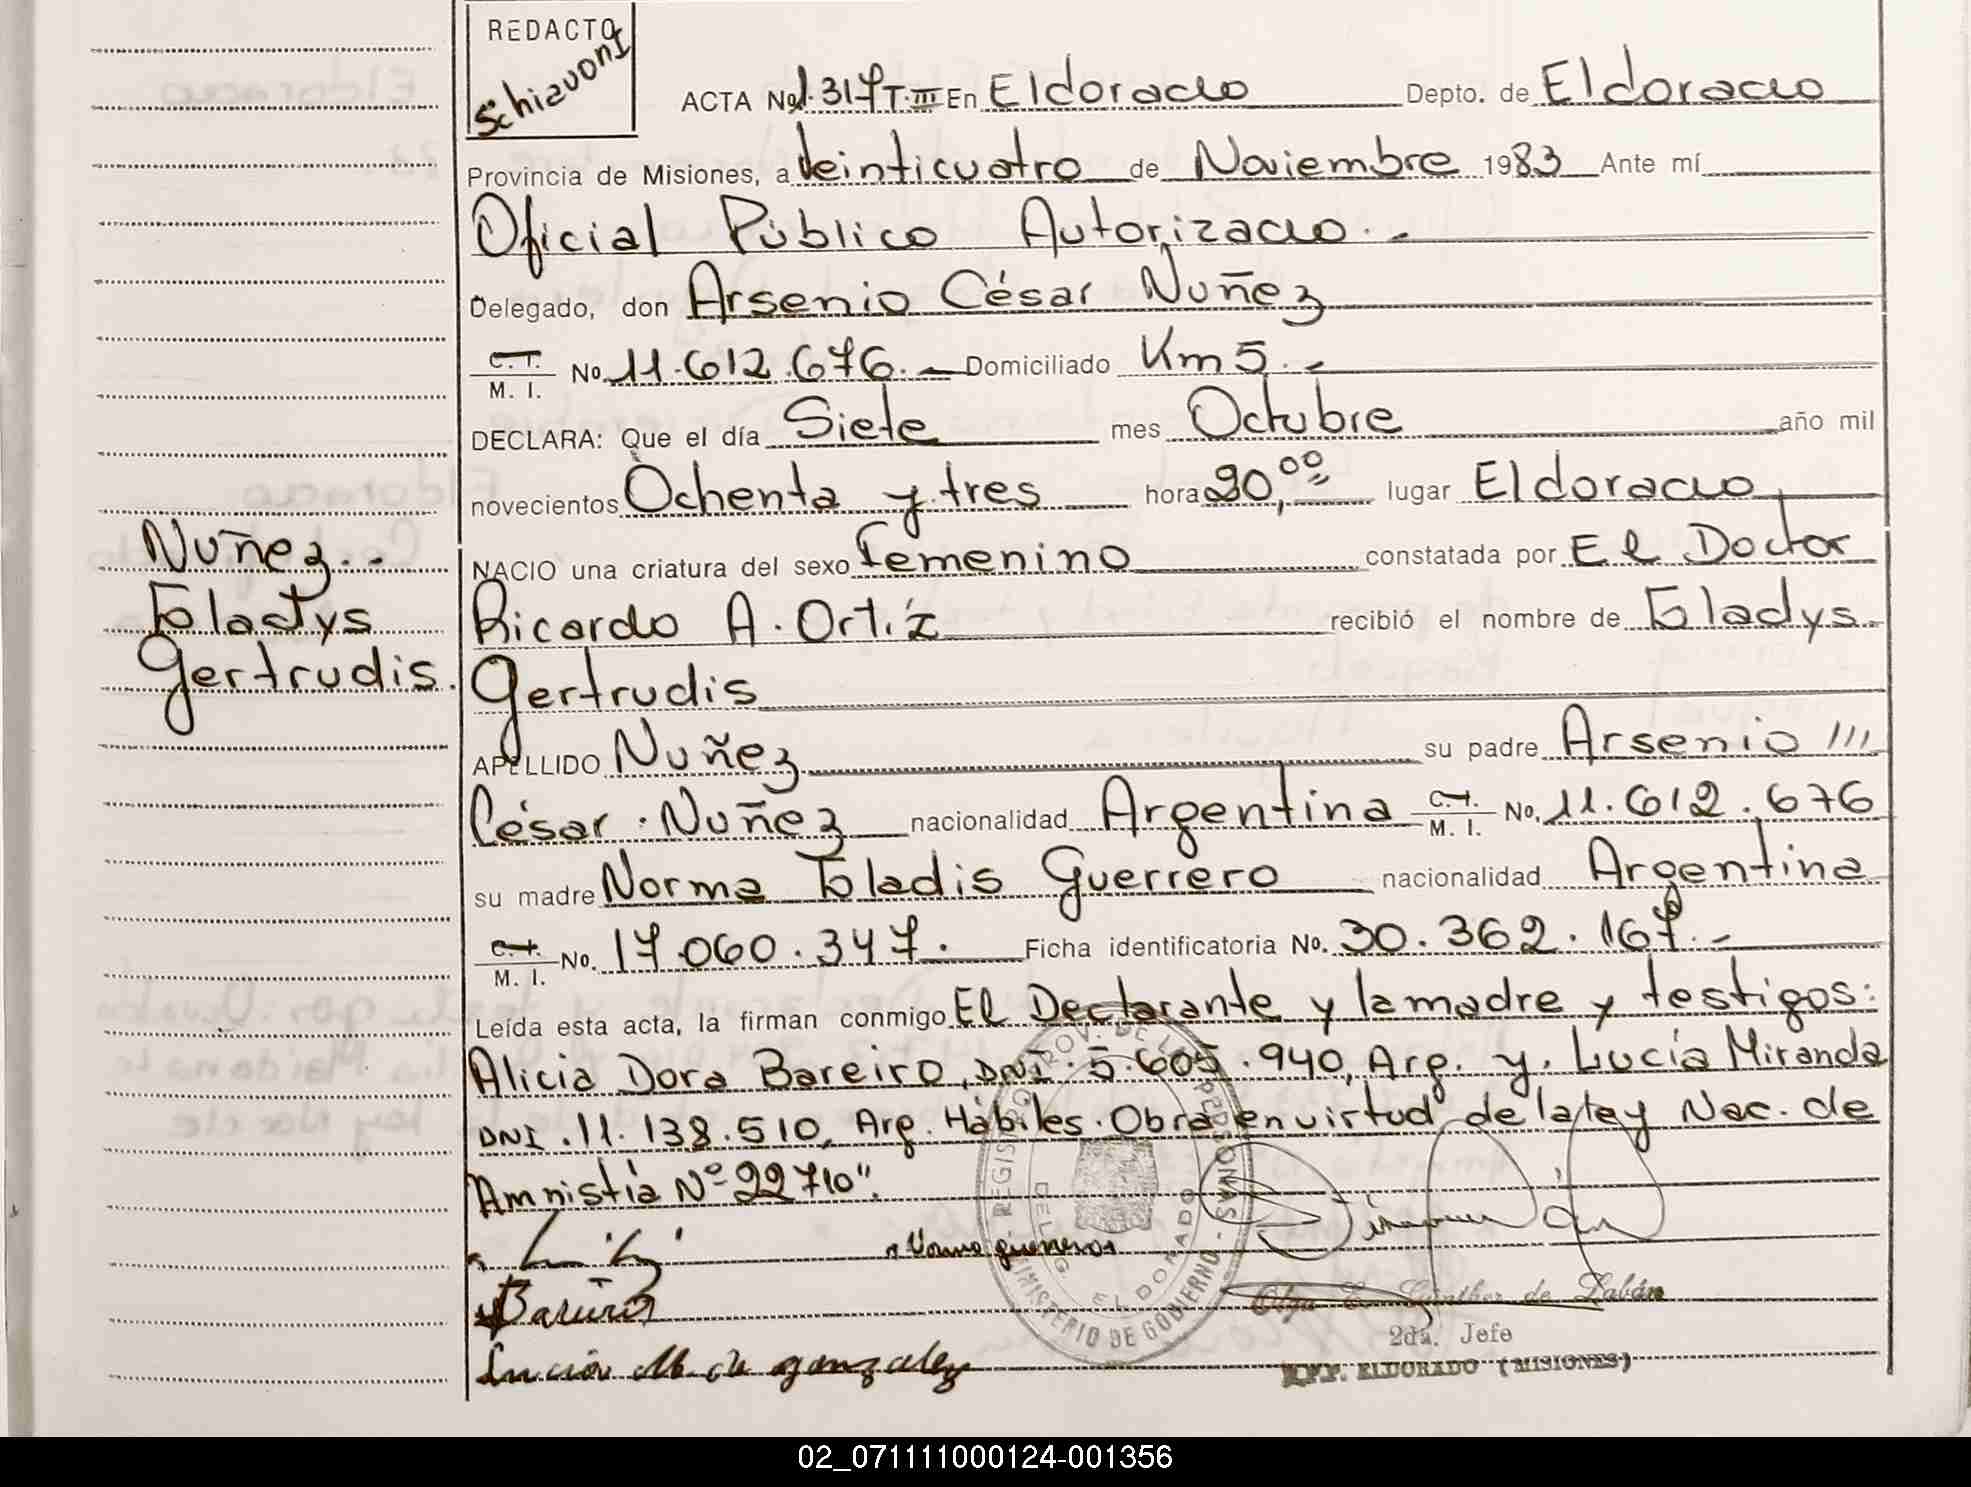 REDACTO
Schiavoni
ACTA No. 1.317 T. III En Eldorado Depto. de Eldorado
Provincia de Misiones, a Veinticuatro de Noviembre 1983 Ante mí
Oficial Público Autorizado.-
Delegado, don Arsenio César Nuñez
C.I. M. I. No. 11.612.676.- Domiciliado Km 5.-
DECLARA: Que el día Siete mes Octubre año mil
novecientos Ochenta y tres hora 20,00 lugar Eldorado
NACIO una criatura del sexo femenino constatada por El Doctor
Ricardo A. Ortíz recibió el nombre de Gladys
Gertrudis
APELLIDO Nuñez su padre Arsenio ///
César Nuñez nacionalidad Argentina C.I. M. I. No. 11.612.676
su madre Norma Gladis Guerrero nacionalidad Argentina
C.I. M. I. No. 17.060.347. Ficha identificatoria No. 30.362.167.-
Leída esta acta, la firman conmigo El Declarante y la madre y testigos:
Alicia Dora Bareiro, DNI. 5.605.940, Arg. y, Lucía Miranda
DNI. 11.138.510, Arg. Hábiles. Obra en virtud de la ley Nac. de
Amnistía Nº 22710".
Norma guerrero
Bareiro
Lucia M de gonzalez
Nuñez.-
Gladys
Gertrudis.
REGISTRO PROV. DE LAS PERSONAS - MINISTERIO DE GOBIERNO
DELEG. ELDORADO
Olga E. Günther de Labán
2da. Jefe
R.P.P. ELDORADO (MISIONES)
02_071111000124-001356